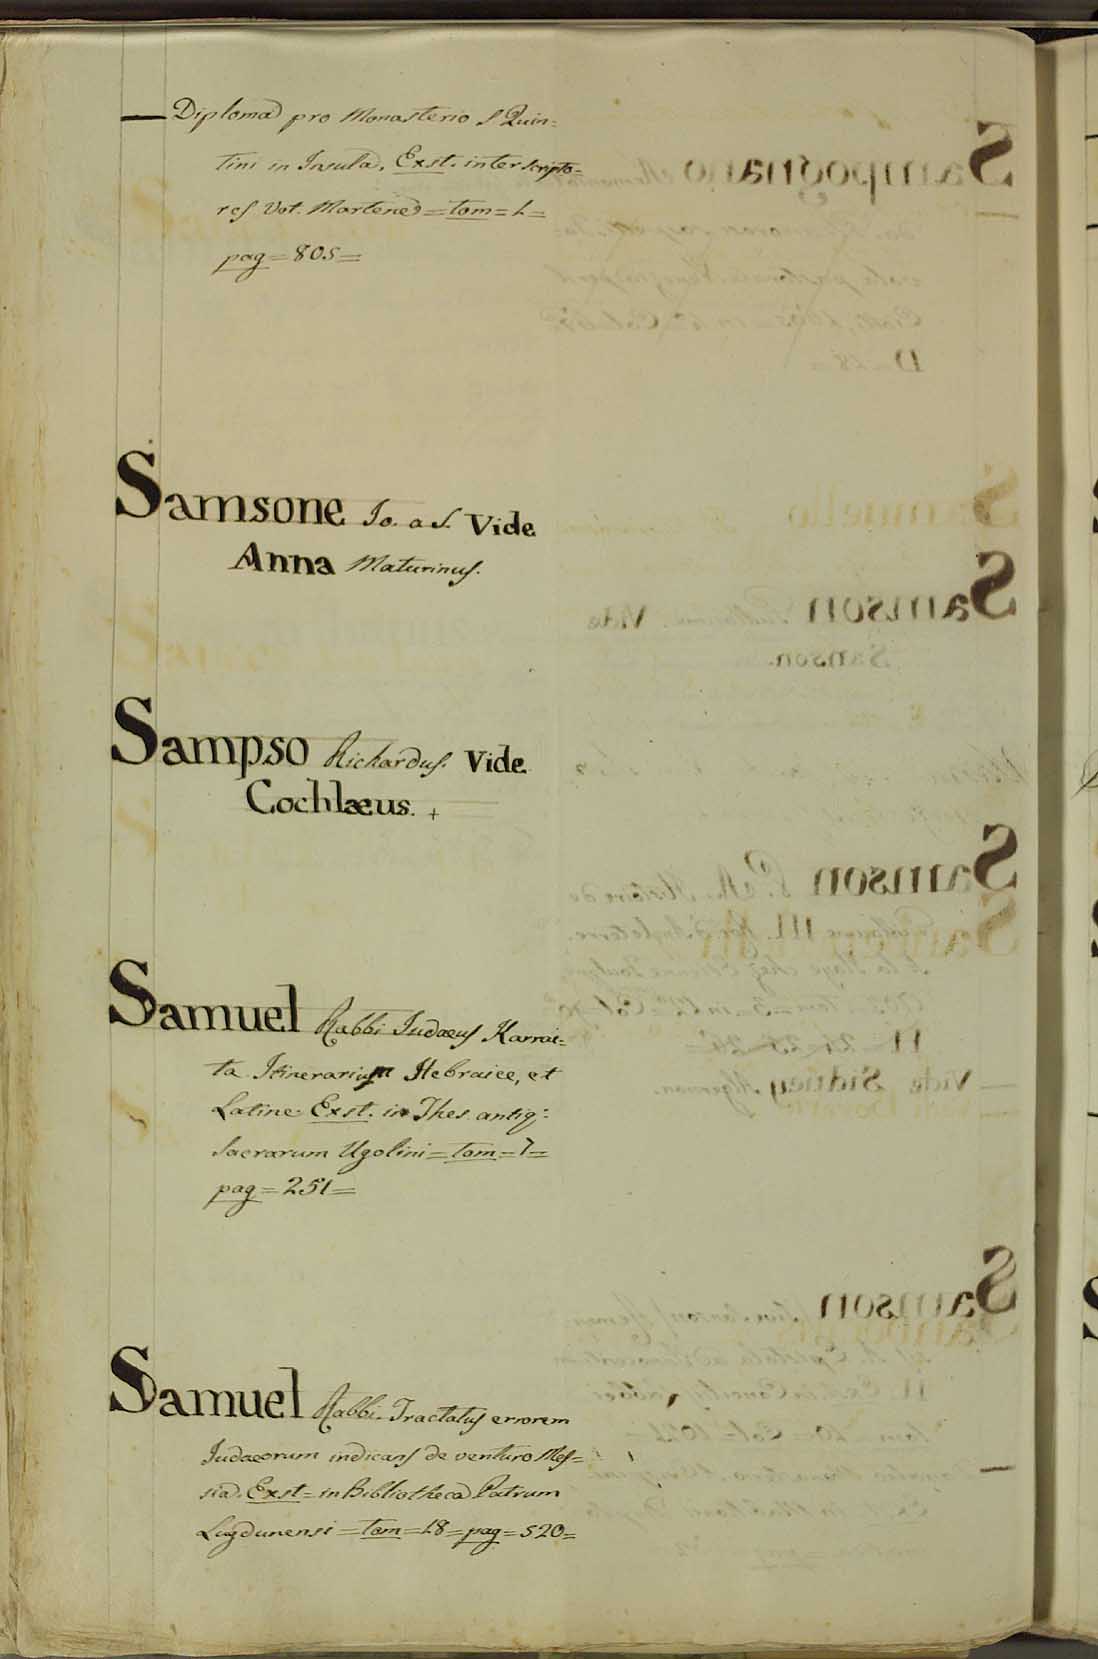 — Diploma pro Monasterio S Quin=
tini in Insula. Exst. inter scripto=
res Vet. Martene = tom = 1 =
pag = 805 =
Samsone Jo. a S. Vide
Anna Maturinus.
Sampso Richardus. Vide
Cochlæus. +
Samuel Rabbi Judaeus Karrai=
ta Itinerarium Hebraice, et
Latine. Exst. in Thes. antiq:
Sacrarum Ugolini = tom = 7 =
pag = 251 =
Samuel Rabbi. Tractatus errorem
Judaeorum indicans de venturo Mes=
sia. Exst = in Bibliotheca Patrum
Lugdunensi = tom = 18 = pag = 520 =